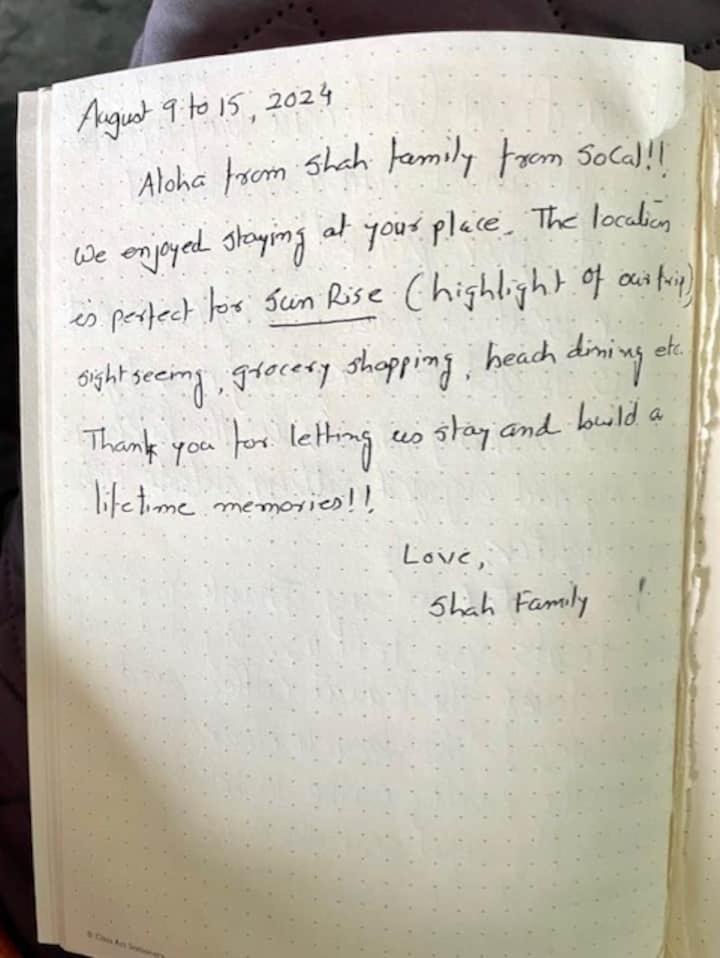 August 9 to 15, 2024
Aloha from Shah family from SoCal!!
We enjoyed staying at your place. The location
is perfect for Sun Rise (highlight of our trip)
sightseeing, grocery shopping, beach dining etc.
Thank you for letting us stay and build a
lifetime memories!!
Love,
Shah Family
© Class Act Stationery